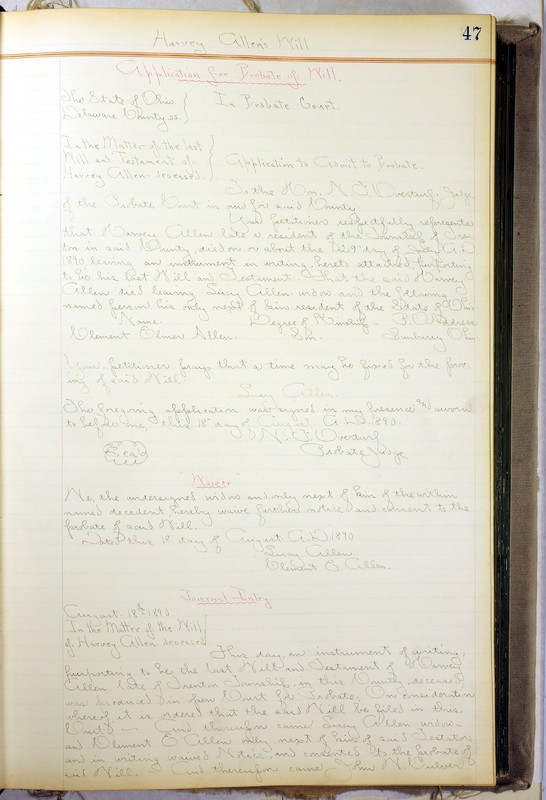 47
Harvey Allen's Will
Application for Probate of Will.
The State of Ohio } In Probate Court.
Delaware County ss.
In the Matter of the last
Will and Testament of } Application to Admit to Probate.
Harvey Allen deceased.
To the Hon. N. F. Overturf, Judge
of the Probate Court in and for said County.
Your petitioner respectfully represents
that Harvey Allen late a resident of the Township of Tren-
ton in said County, died on or about the day of July A.D.
1890 leaving an instrument in writing, hereto attached, purporting
to be his last Will and Testament. That the said Harvey
Allen died leaving Lucy Allen widow and the following
named person his only next of kin resident of the State of Ohio
Name. Degree of Kinship. P.O. Address
Clement Elmer Allen. Son. Sunbury Ohio
Your petitioner prays that a time may be fixed for the prov-
ing of said Will.
Lucy Allen.
The foregoing application was signed in my presence and sworn
to before me this 18" day of August A.D. 1890.
N. F. Overturf
Seal Probate Judge
"Waiver"
We, the undersigned widow and only next of kin of the within
named decedent, hereby waive further notice and consent to the
probate of said Will.
Dated this 18 day of August A.D. 1890
Lucy Allen
Clement E. Allen.
Journal Entry
August 18th 1890
In the Matter of the Will
of Harvey Allen deceased
This day, an instrument of writing,
purporting to be the last Will and Testament of Harvey
Allen late of Trenton Township, in this County, deceased,
was produced in open Court for Probate, On consideration
whereof it is ordered that the said Will be filed in this
Court. And thereupon came Lucy Allen widow
and Clement E Allen only next of kin of said Testator
and in writing waived Notice, and consented to the probate of
said Will. And thereupon came John N